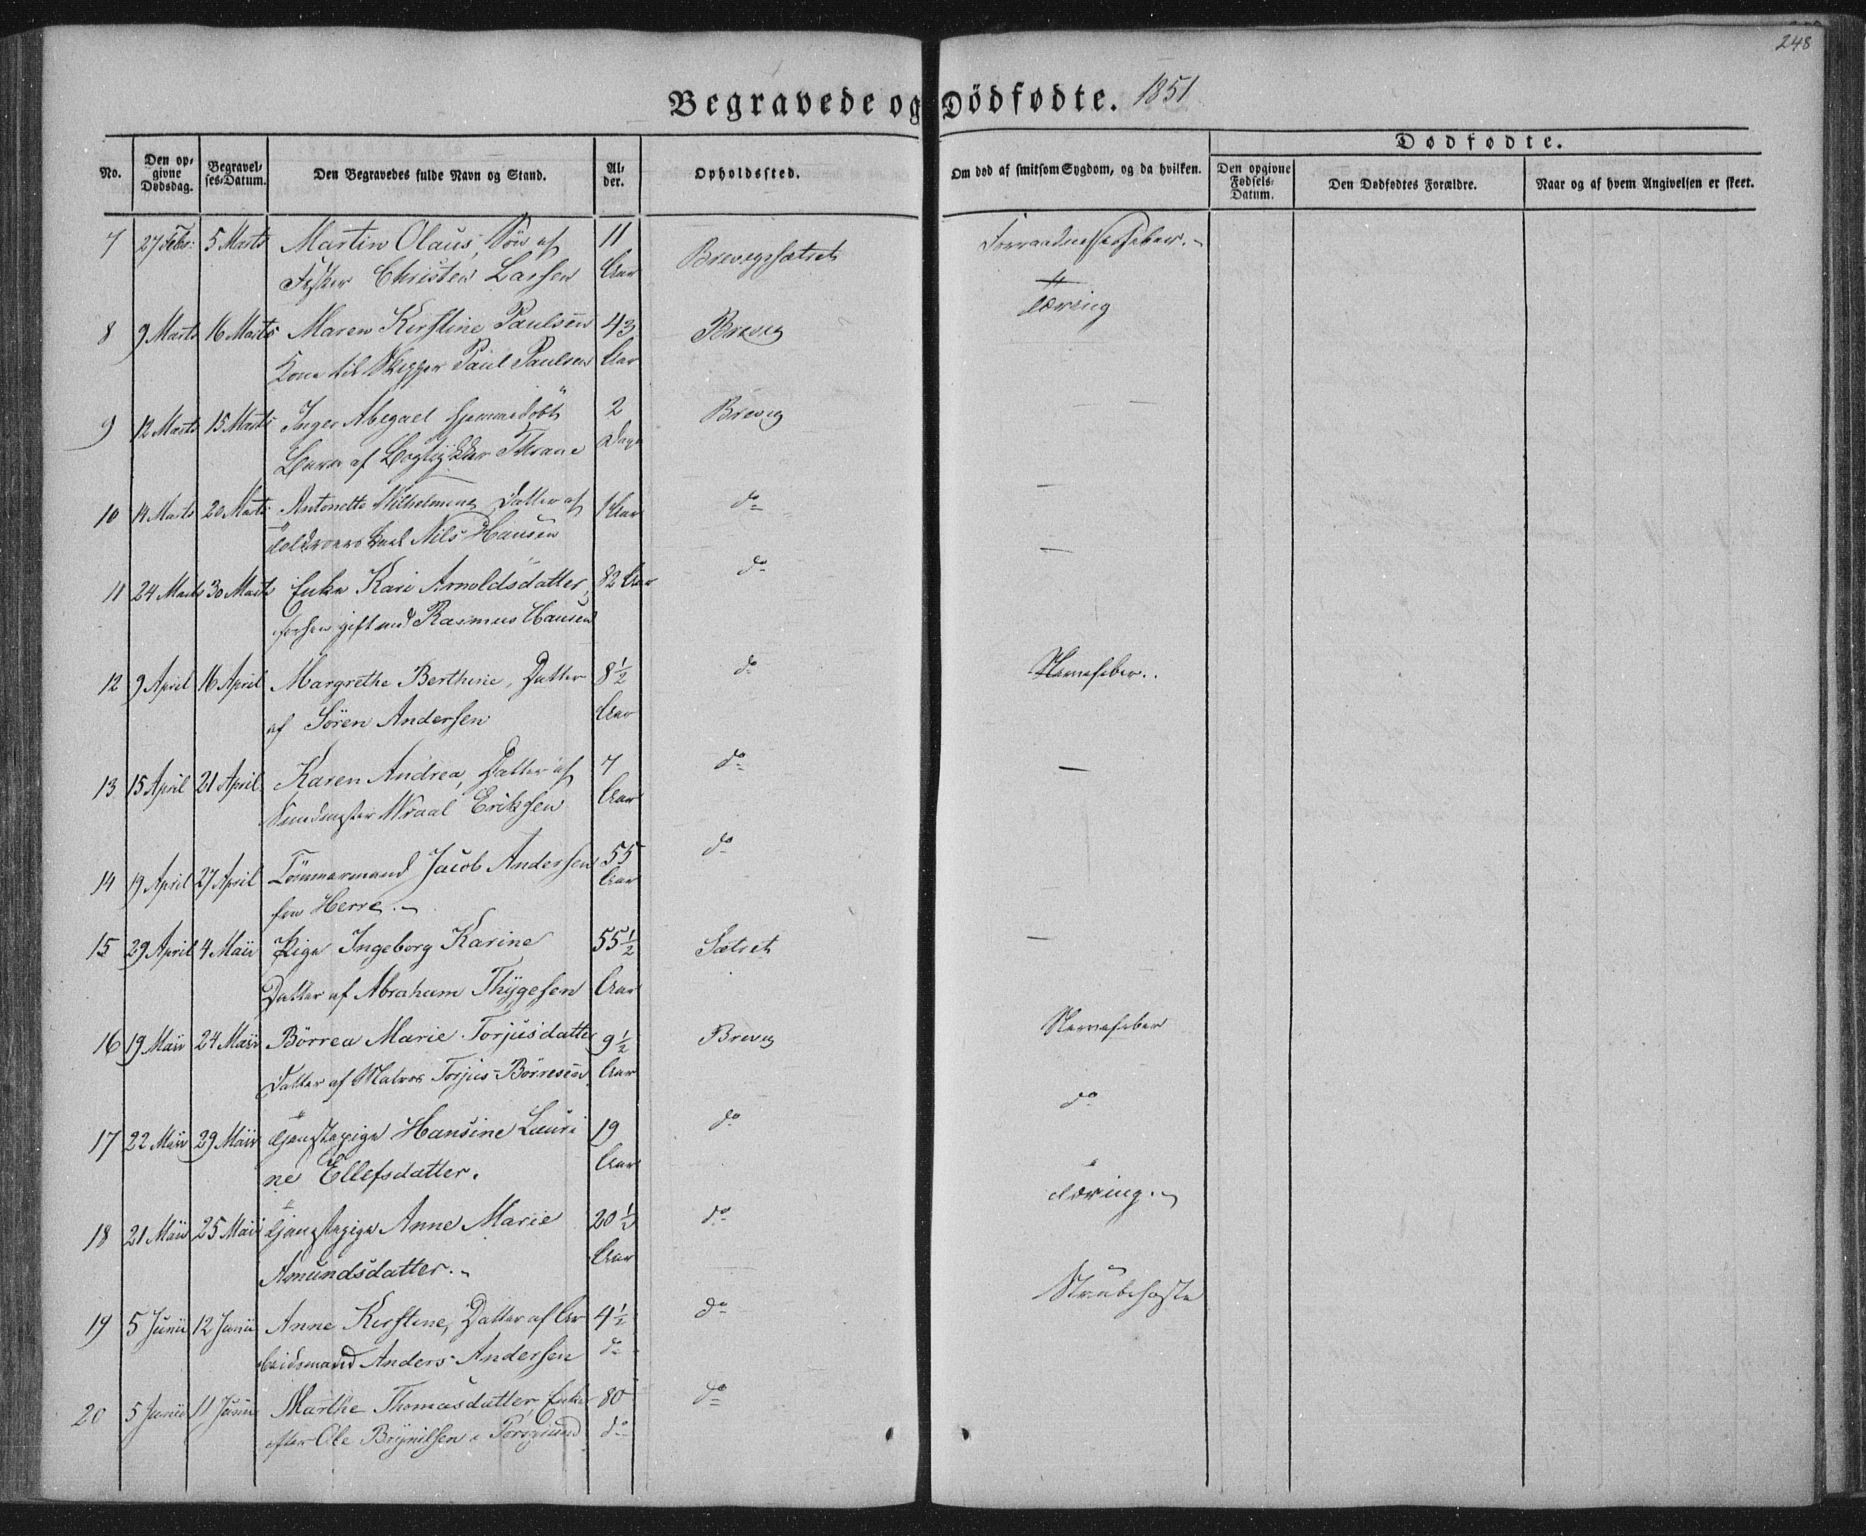 248
Begravede og Dödfødte. 1851
No.
Den opgivne Dødsdag.
Begravelses-Datum.
Den Begravedes fulde Navn og Stand.
Alder.
Opholdssted.
Om død af smitsom Sygdom, og da hvilken.
Dødfødte.
Den opgivne Fødsels-Datum.
Den Dødfødtes Forældre.
Naar og af hvem Angivelsen er skeet.
7 27 Febr: 5 Marts Martin Olaus, Søn af 11 Brevigssætret
Fisker Christen Larsen Aar
8 9 Marts 16 Marts Maren Kirstine Paulsen 43 Brevig Tæring
Kone til Skipper Paul Paulsen Aar
9 12 Marts 15 Marts Inger Abegael hjemmedøbt 2 Brevig —
Barn af Bogtrykker Thrane Dage
10 14 Marts 20 Marts Antonette Wilhelmine, Datter af 1 Aar do —
Nils Hansen
11 24 Marts 30 Marts Enke Kari Arnoldsdatter, 82 Aar do —
forhen gift med Rasmus Hansen
12 9 April 16 April Margrethe Berthine, Datter 8½ do Nervefeber.
af Sören Andersen Aar
13 15 April 21 April Karen Andrea, Datter af 7 do —
Wraal Eriksen Aar
14 19 April 27 April Tömmermand Jacob Andersen 55 do
fra Herre. Aar
15 29 April 4 Maii Pige Ingeborg Karine 55½ Sætret —
Datter af Abraham Thygesen Aar
16 19 Maii 24 Maii Börrea Marie Torjusdatter 9½ Brevig Nervefeber
Datter af Matros Torjus Börresen Aar
17 22 Maii 29 Maii Tjenestepige Hansine Lauri 19 do do
ne Ellefsdatter. Aar
18 21 Maii 25 Maii Tjenestepige Anne Marie 20½ do Tæring.
Amundsdatter. Aar
19 5 Junii 12 Junii Anne Kirstine, Datter af Ar 4½ do Strubehoste
beidsmand Anders Andersen do
20 5 Junii 11 Junii Marthe Thomasdatter, Enke 80 do
efter Ole Brynilsen i Porsgrund do